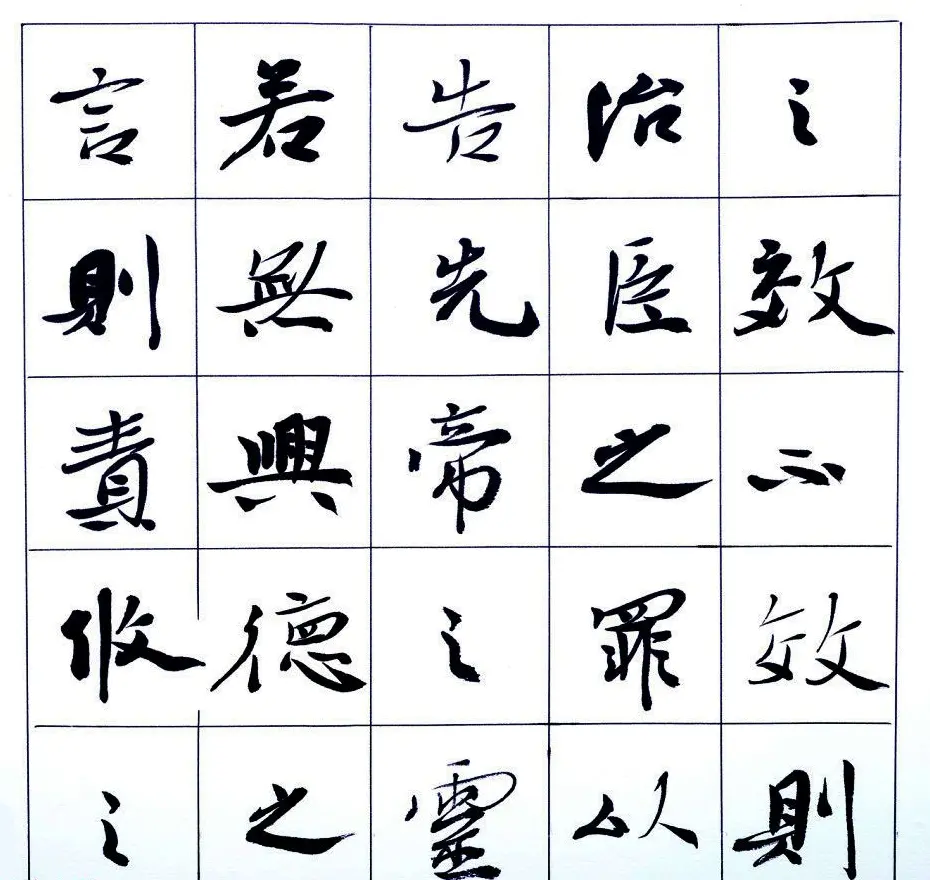 之效不效則
治臣之罪以
告先帝之靈
若無興德之
言則責攸之